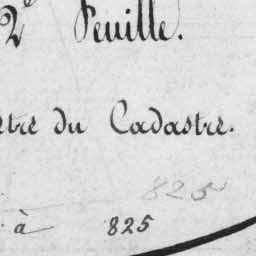 2e Feuille.
etre du Cadastre.
825
à 825